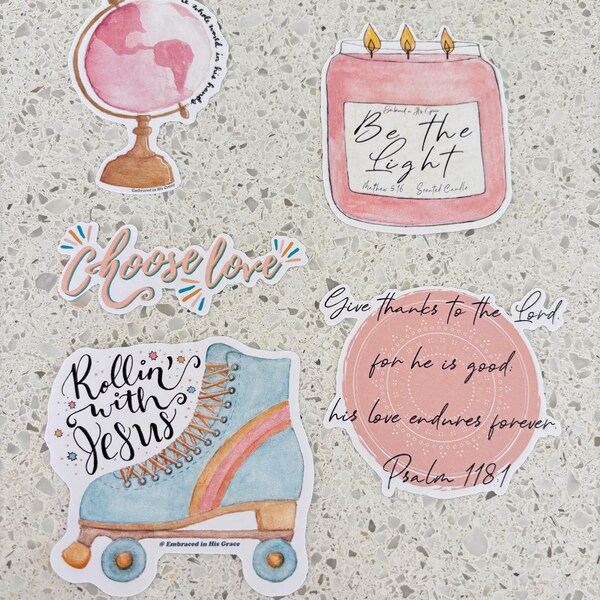 whole world in his hands
Embraced in His Grace
Be the
Light
Matthew 5:16 Scented Candle
Choose love
Give thanks to the Lord
for he is good;
his love endures forever
Psalm 118:1
Rollin'
with
Jesus
@ Embraced in His Grace